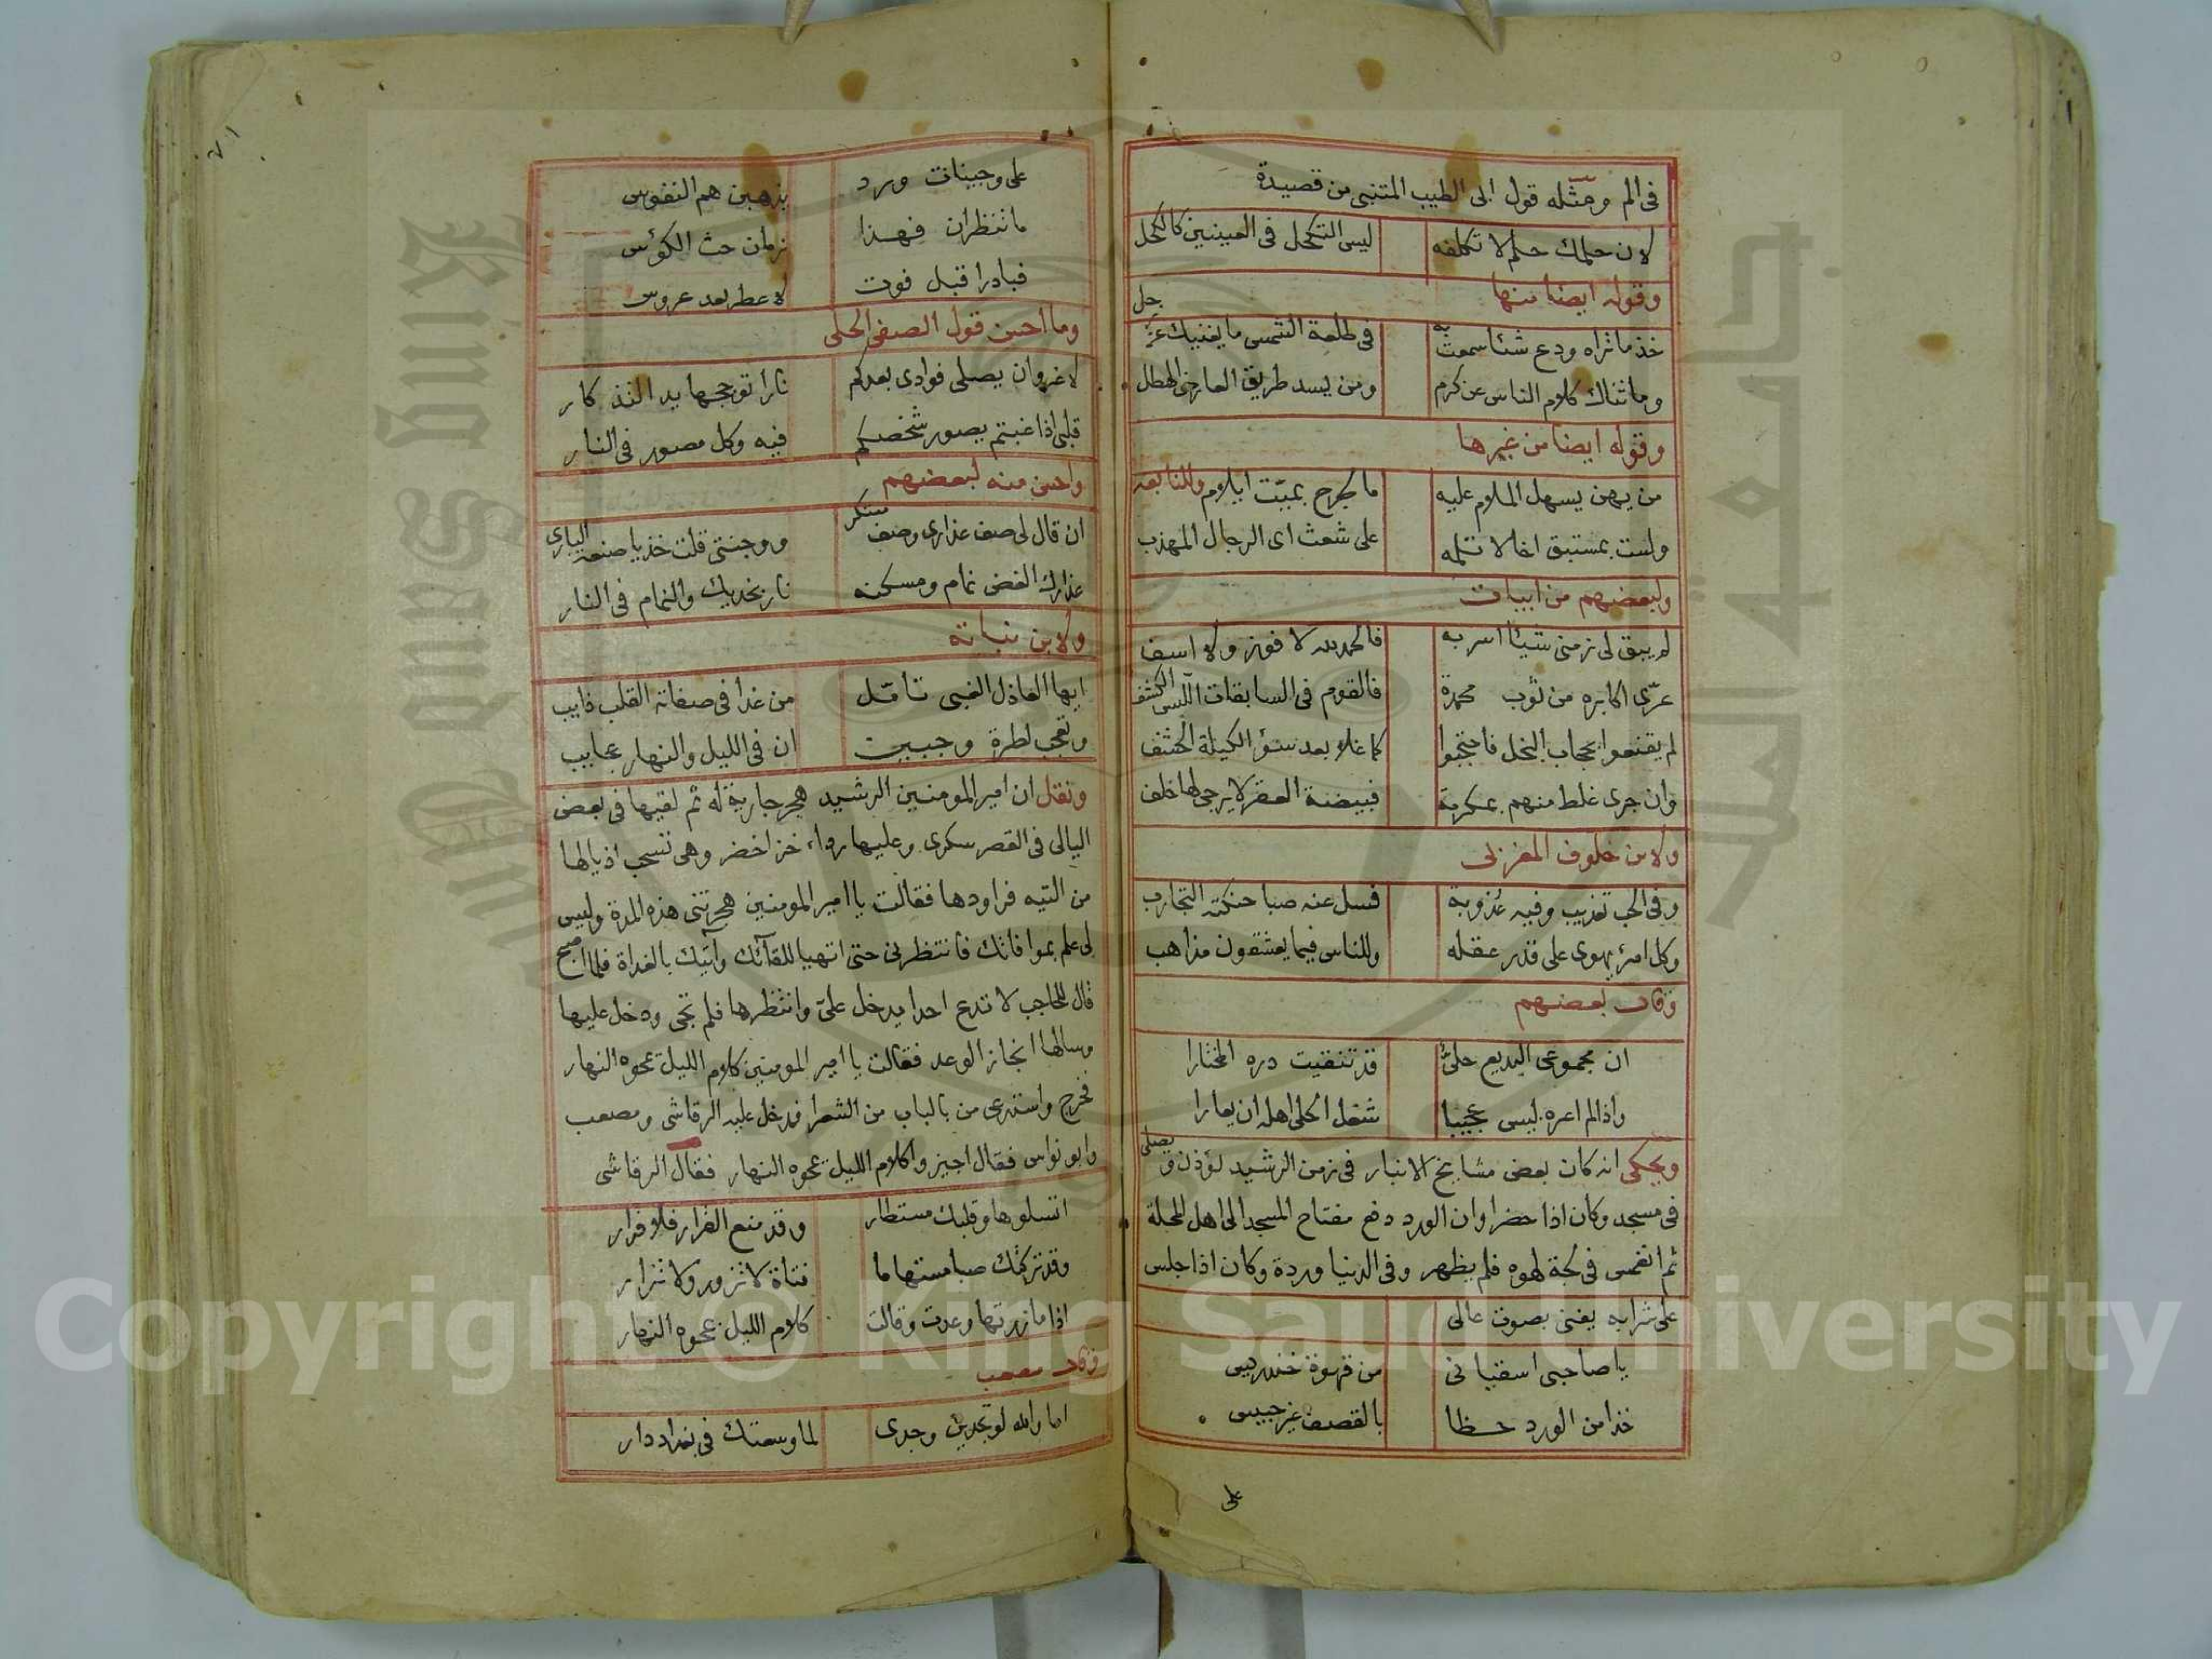 فى الم ومثله قول ابى الطيب المتنبى من قصيدة
لان حلمك حلم لا تكلفه ليس التكحل فى العينين كالكحل
وقوله ايضا منها
خذ ما تراه ودع شئا سمعت به فى طلعة الشمس ما يغنيك عن زحل
وما ثناك كلام الناس عن كرم ومن يسد طريق العارض الهطل
وقوله ايضا من غيرها
من يهن يسهل الملام عليه ما لجرح بميّت ايلام وللنابعه
ولست بمستبق اخا لا تلمه على شعث اى الرجال المهذب
ولبعضهم من ابيات
لم يبق لى زمنى شيئا اسر به فالحمد لله لا فوز ولا اسف
عرّى اكابره من ثوب محمدة فالقوم فى السابقات اللّبس الكشف
لم يقنعوا بحجاب البخل فاحتجبوا كما غلا بعد سؤ الكيلة الحشف
وان جرى غلط منهم بمكرمة فبيضة العقر لا يرجى لها خلف
ولابن خلوف المغربى
وفى الحب تعذيب وفيه عذوبة فسل عنه صبا حنكته التجارب
وكل امرئ يهوى على قدر عقله وللناس فيما يعشقون مذاهب
وقال بعضهم
ان مجموعى البديع حلىٌّ قد تنقيت دره المختارا
واذا لم اعره ليس عجيبا شغل الحلى اهله ان يعارا
ويحكى انه كان بعض مشايخ الانبار فى زمن الرشيد يؤذن ويصلى
فى مسجد وكان اذا حضر اوان الورد دفع مفتاح المسجد الى اهل المحلة
ثم انغمس فى لجة لهوه فلم يظهر وفى الدنيا وردة وكان اذا جلس
على شرابه يغنى بصوت عالى
يا صاحبى اسقيانى من قهوة خندريس
خذا من الورد حظا بالقصف غير حبيس
على
٧١
على وجينات ورد يذهبن هم النفوس
ما تنتظران فهذا زمان حث الكؤس
فبادرا قبل فوت لا عطر بعد عروس
وما احسن قول الصفى الحلى
لا غرو ان يصلى فوادى بعدكم نارا توججها يد التذكار
قلبى اذا غبتم يصور شخصكم فيه وكل مصور فى النار
واحسن منه لبعضهم
ان قال لى صف عذارى وصف مبتكر ووجنتى قلت خذ يا صنعة البارى
عذارك الغض نمام ومسكنه نار بخديك والنمام فى النار
ولابن نباته
ايها العاذل الغبى تامّل من غدا فى صفاته القلب ذايب
وتعجب لطرة وجبين ان فى الليل والنهار عجايب
ونقل ان امير المومنين الرشيد هجر جارية له ثم لقيها فى بعض
اليالى فى القصر سكرى وعليها رداء خز اخضر وهى تسحب اذيالها
من التيه فراودها فقالت يا امير المومنين هجرتنى هذه المدة وليس
لى علم بموافاتك فانتظرنى حتى اتهيا للقآئك وآتيك بالغداة فلما اصبح
قال للحاجب لا تدع احدا يدخل علىّ وانتظرها فلم تجى ودخل عليها
وسالها انجاز الوعد فقالت يا امير المومنين كلام الليل يمحوه النهار
فخرج واستدعى من بالباب من الشعرا فدخل عليه الرقاشى ومصعب
وابو نواس فقال اجيزوا كلام الليل يمحوه النهار فقال الرقاشى
اتسلوها وقلبك مستطار وقد منع القرار فلا قرار
وقد تركتك صبا مستهاما فتاة لا تزور ولا تزار
اذا ما زرتها وعدت وقالت كلام الليل يمحوه النهار
وقال مصعب
اما والله لو تجدين وجدى لما وسعتك فى بغداد دار
Copyright © King Saud University